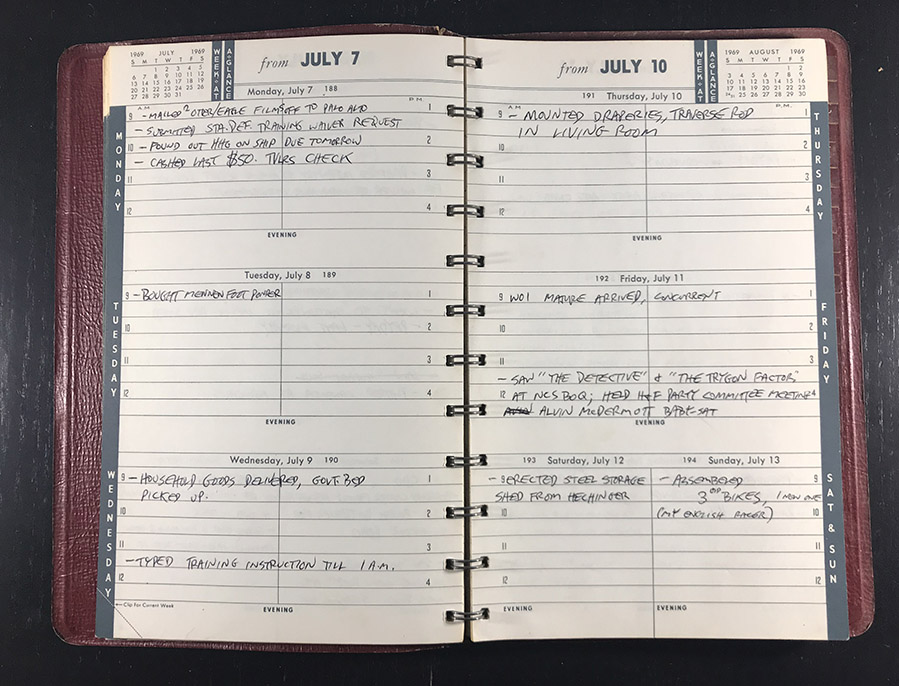 1969 JULY 1969
S M T W T F S
1 2 3 4 5
6 7 8 9 10 11 12
13 14 15 16 17 18 19
20 21 22 23 24 25 26
27 28 29 30 31
WEEK-AT
A-GLANCE
from JULY 7
Monday, July 7 188
MONDAY
A.M. P.M.
9 - MAILED 2 OTER/EAGLE FILMS OFF TO PALO ALTO 1
- SUBMITTED STA. DEF. TRAINING WAIVER REQUEST
10 - FOUND OUT HHG ON SHIP DUE TOMORROW 2
- CASHED LAST $50. TVLRS CHECK
11 3
12 4
EVENING
Tuesday, July 8 189
TUESDAY
9 - BOUGHT MENNEN FOOT POWDER 1
10 2
11 3
12 4
EVENING
Wednesday, July 9 190
WEDNESDAY
9 - HOUSEHOLD GOODS DELIVERED, GOVT. BED 1
PICKED UP.
10 2
11 3
- TYPED TRAINING INSTRUCTION TILL 1 A.M.
12 4
Clip For Current Week
EVENING
from JULY 10
WEEK-AT
A-GLANCE
1969 AUGUST 1969
S M T W T F S
1 2
3 4 5 6 7 8 9
10 11 12 13 14 15 16
17 18 19 20 21 22 23
24/31 25 26 27 28 29 30
191 Thursday, July 10
THURSDAY
A.M. P.M.
9 - MOUNTED DRAPERIES, TRAVERSE ROD 1
IN LIVING ROOM
10 2
11 3
12 4
EVENING
192 Friday, July 11
FRIDAY
9 WO1 MATURE ARRIVED, CONCURRENT 1
10 2
11 3
- SAW "THE DETECTIVE" & "THE TRYGON FACTOR"
12 AT NCS BOQ; HELD H&F PARTY COMMITTEE MEETING 4
ALVIN McDERMOTT BABY-SAT
EVENING
193 Saturday, July 12
- 9 ERECTED STEEL STORAGE
SHED FROM HECHINGER
10
11
12
EVENING
194 Sunday, July 13
SAT & SUN
- ASSEMBLED 9
3 OF BIKES, 1 MORE ONE
(MY ENGLISH RACER) 10
11
12
EVENING